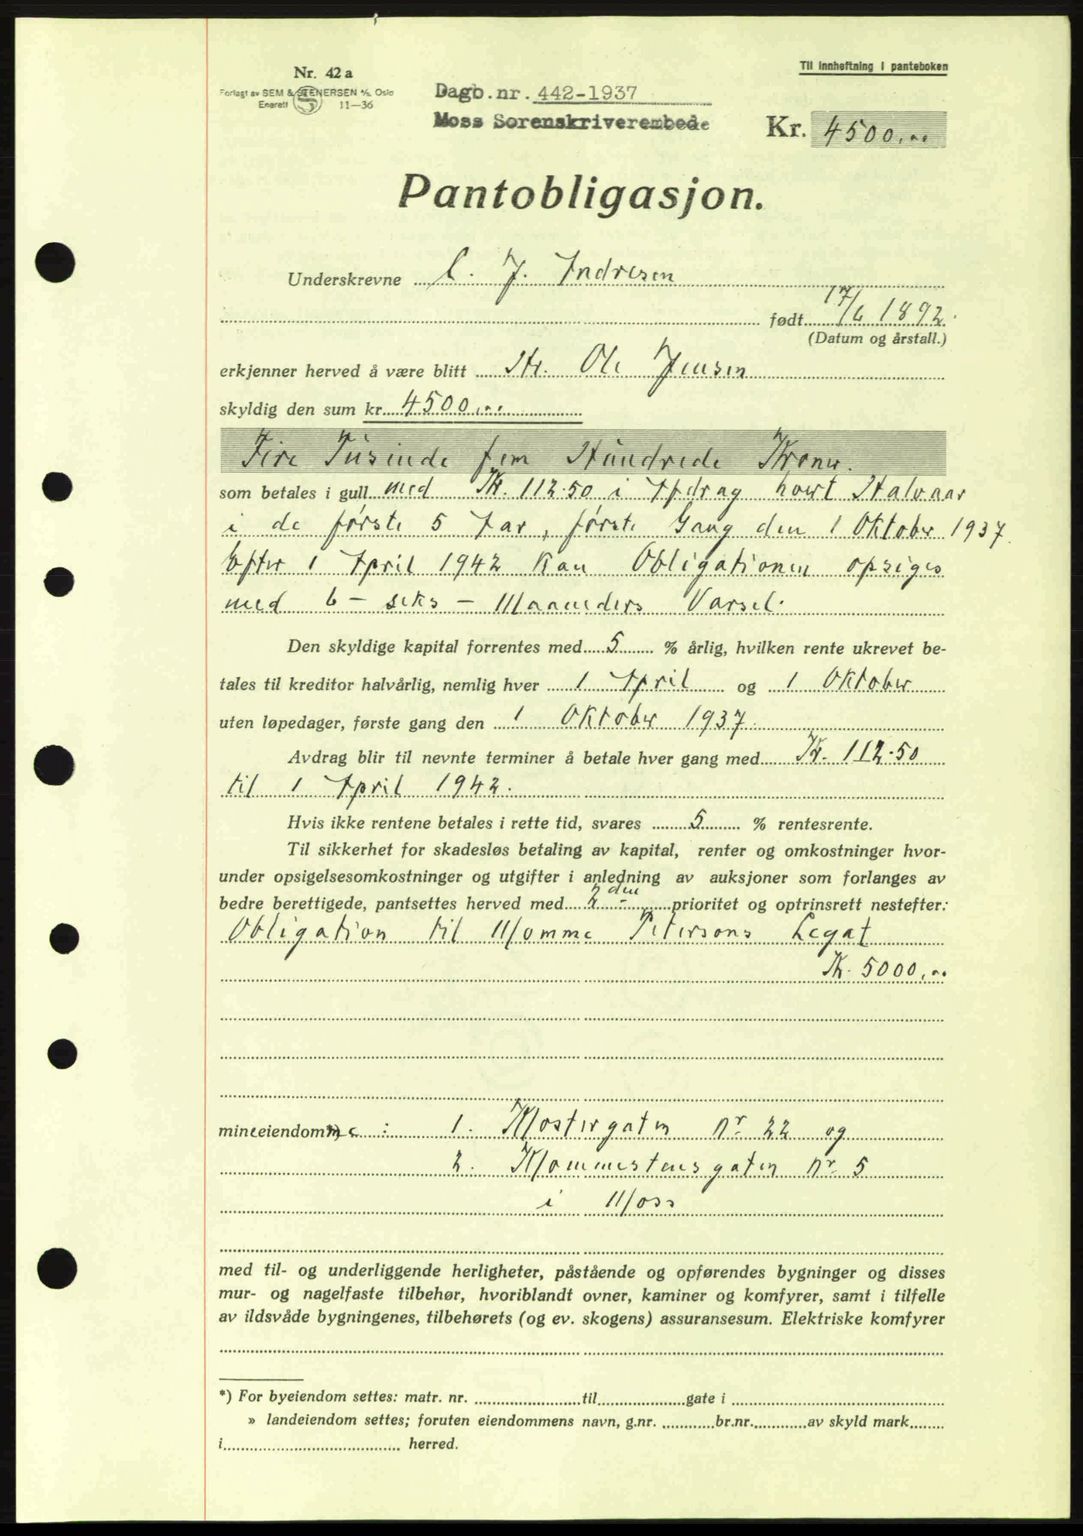 Til innheftning i panteboken
Nr. 42 a
Forlagt av SEM & STENERSEN A/S, Oslo
Enerett 11—36
Dagb.nr. 442-1937
Moss Sorenskriverembede
Kr. 4500,..
Pantobligasjon.
Underskrevne C. J. Andresen
født 17/6 1892.
(Datum og årstall.)
erkjenner herved å være blitt Hr. Ole Jensen
skyldig den sum kr. 4500,..
Fire Tusinde fem Hundrede Kroner.
som betales i gull med Kr. 112.50 i Afdrag hvert Halvaar
i de første 5 Aar, første Gang den 1 Oktober 1937.
Efter 1 April 1942 kan Obligationen opsiges
med 6 - seks - Maaneders Varsel.
Den skyldige kapital forrentes med 5 % årlig, hvilken rente ukrevet be-
tales til kreditor halvårlig, nemlig hver 1 April og 1 Oktober
uten løpedager, første gang den 1 Oktober 1937.
Avdrag blir til nevnte terminer å betale hver gang med Kr. 112.50
til 1 April 1942.
Hvis ikke rentene betales i rette tid, svares 5 % rentesrente.
Til sikkerhet for skadesløs betaling av kapital, renter og omkostninger hvor-
under opsigelsesomkostninger og utgifter i anledning av auksjoner som forlanges av
bedre berettigede, pantsettes herved med 2den prioritet og optrinsrett nestefter:
Obligation til Momme Petersons Legat
Kr. 5000,..
mine eiendomme :
1. Klostergaten nr. 22 og
2. Klommestensgaten nr. 5
i Moss
med til- og underliggende herligheter, påstående og opførendes bygninger og disses
mur- og nagelfaste tilbehør, hvoriblandt ovner, kaminer og komfyrer, samt i tilfelle
av ildsvåde bygningenes, tilbehørets (og ev. skogens) assuransesum. Elektriske komfyrer
*) For byeiendom settes: matr. nr. til gate i
» landeiendom settes; foruten eiendommens navn, g.nr. br.nr. av skyld mark
i herred.